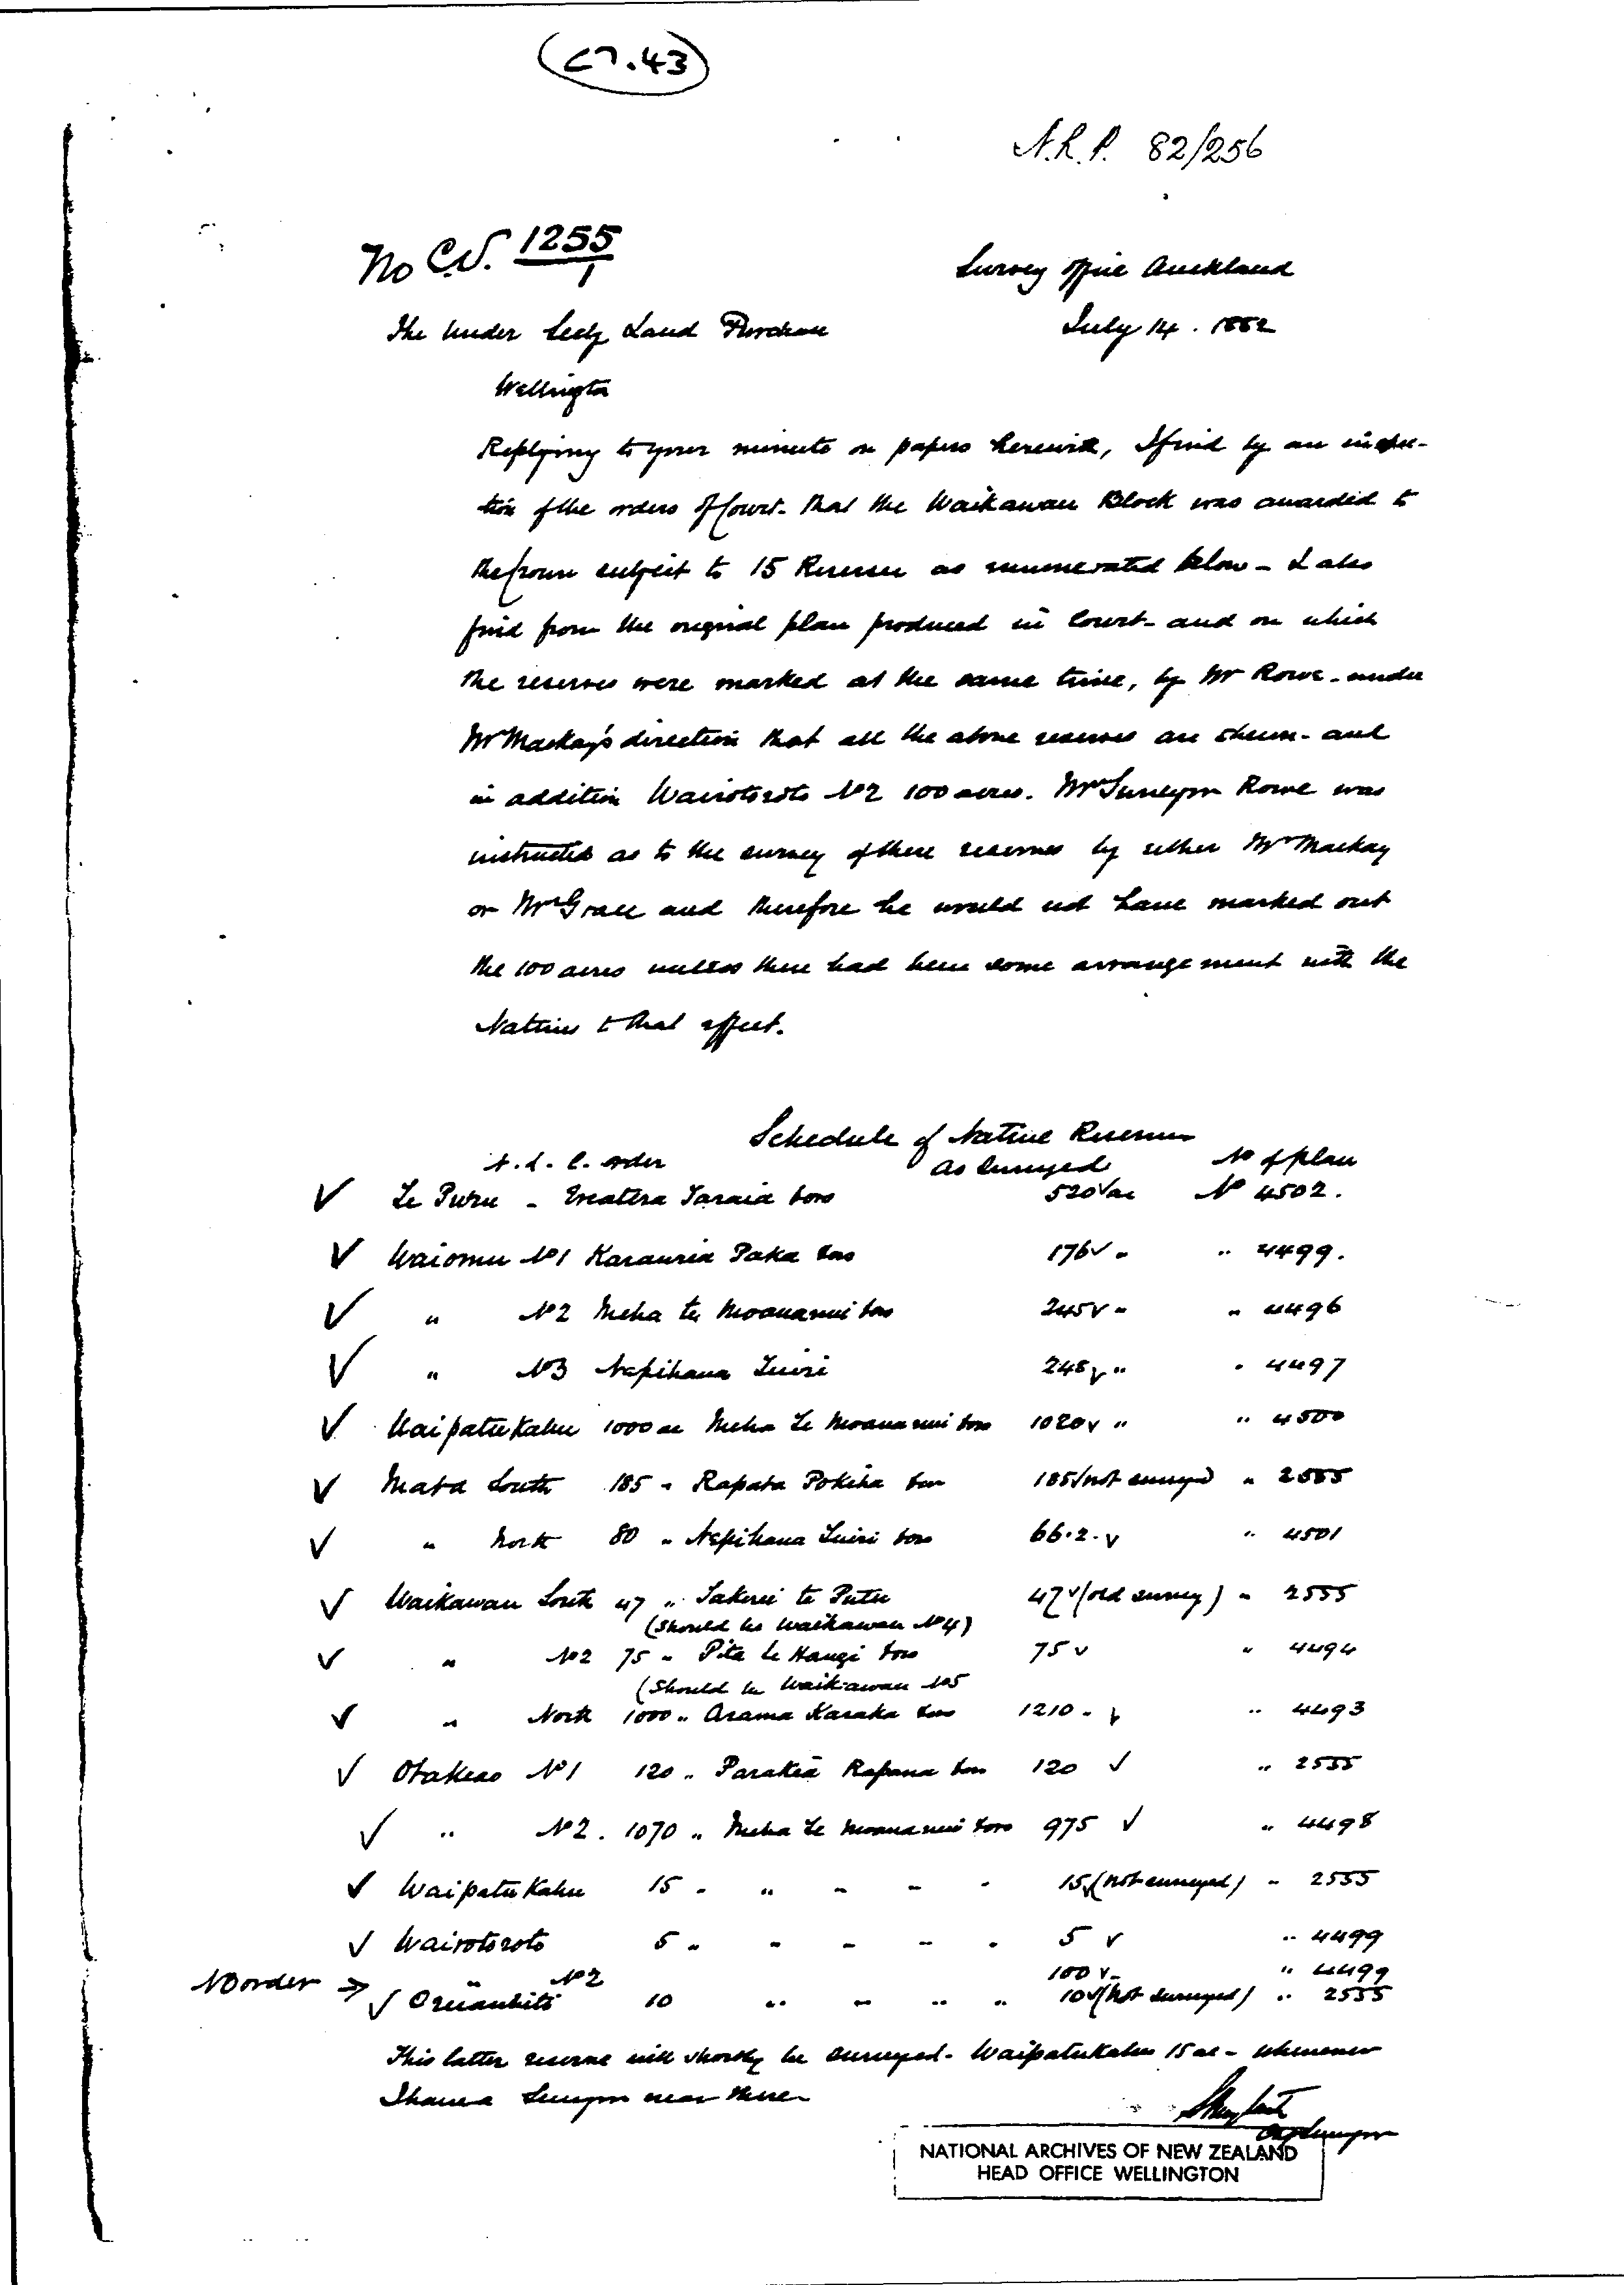 (C7.43)
N.L.P. 82/256
No C.N. 1255/1
Survey Office Auckland
The Under Secy Land Purchase
July 14. 1882
Wellington
Replying to your minute on papers herewith, I find by an inspec-
tion of the orders of Court that the Waikawau Block was awarded to
the Crown subject to 15 Reserves as enumerated below - I also
find from the original plan produced in Court - and on which
the reserves were marked at the same time, by Mr Rowe - under
Mr Mackay's direction that all the above reserves are shewn - and
in addition Wairotoroto No 2 100 acres. Mr Surveyor Rowe was
instructed as to the survey of these reserves by either Mr Mackay
or Mr Grace and therefore he would not have marked out
the 100 acres unless there had been some arrangement with the
Natives to that effect.
Schedule of Native Reserves
N. L. C. order As Surveyed No of plan
Te Puru - Taraia 520 ac No 4502.
Waiomu No 1 Karauria Paka 176 " " 4499.
" No 2 Meha te Moananui 245 " " 4496
" No 3 Napihana 248 " " 4497
Waipatukahu 1000 ac Meha Te Moananui 1020 " " 4500
Mata South 185 " Rapata Pokiha 185 (not surveyed) " 2555
" North 80 " Napihana 66.2. " 4501
Waikawau South 47 " te Putu 47 (old survey) " 2555
(should be Waikawau No 4)
" No 2 75 " Pita te Hangi 75 " 4494
(Should be Waikawau No 5
" North 1000 " Arama Karaka 1210 " " 4493
Otakeao No 1 120 " Rapana 120 " 2555
" No 2. 1070 " Meha Te Moananui 975 " 4498
Waipatukahu 15 " " " " " 15 (not surveyed) " 2555
Wairotoroto 5 " " " " " 5 " 4499
No order → " No 2 100 " " 4499
10 " " " " 10 (not surveyed) " 2555
This latter reserve will shortly be surveyed - Waipatukahu 15 ac - whenever
I have a Surveyor near there
NATIONAL ARCHIVES OF NEW ZEALAND
HEAD OFFICE WELLINGTON